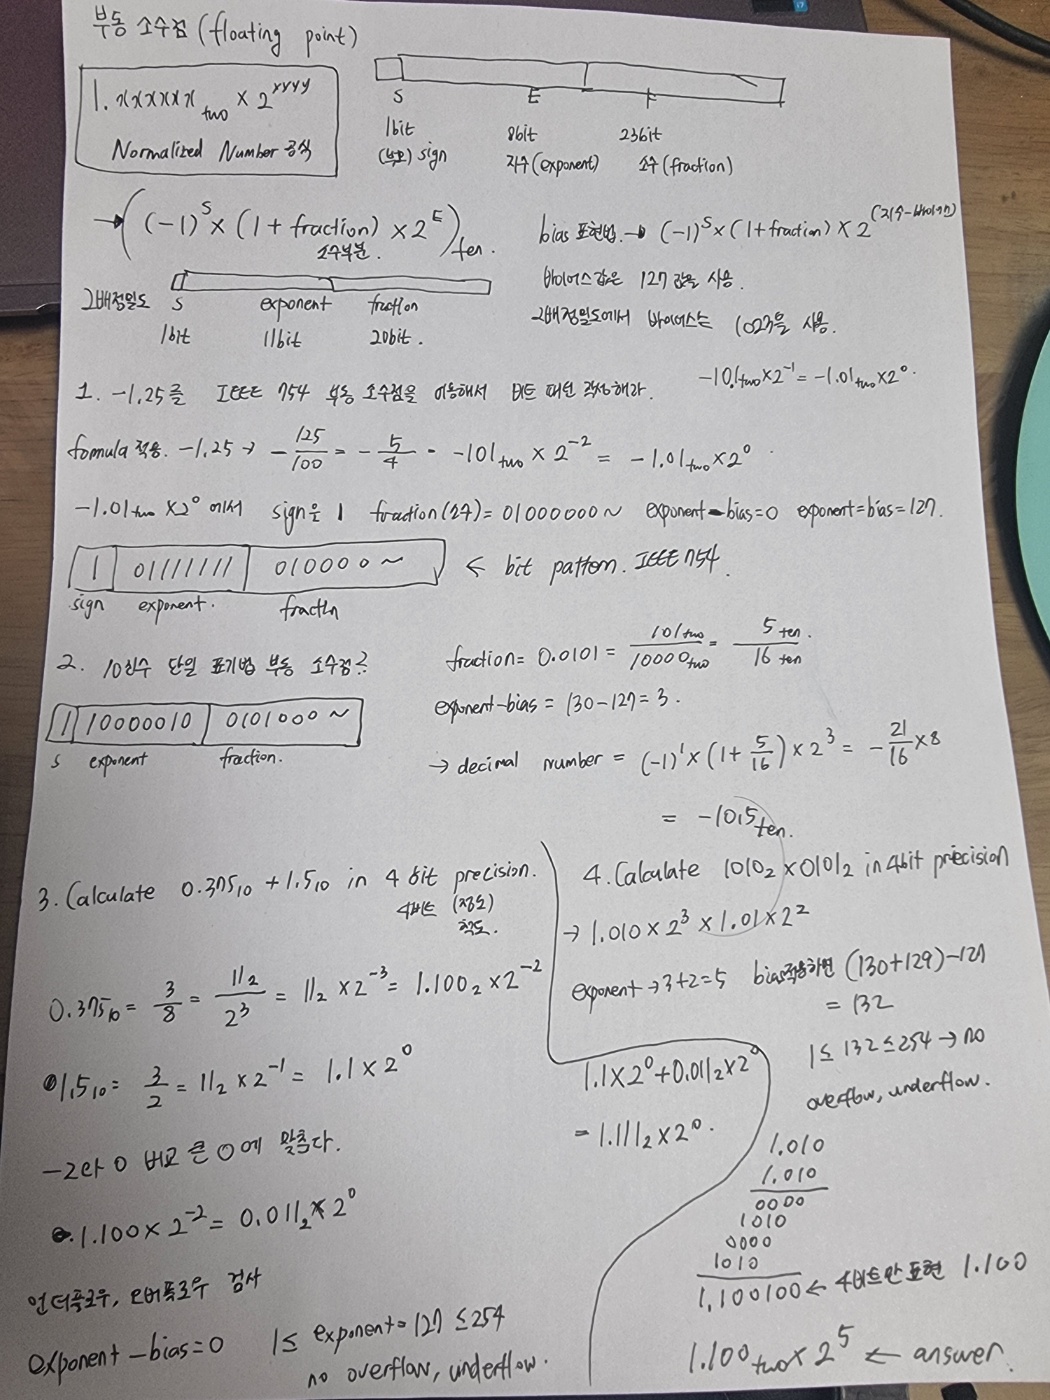 부동 소수점 (floating point)
1.xxxxxx two × 2^yyyy
Normalized Number 공식
S E F
1bit 8bit 23bit
(부호) sign 지수 (exponent) 소수 (fraction)
→ ((-1)^S × (1 + fraction) × 2^E) ten.
소수부분.
bias 표현법. → (-1)^S × (1 + fraction) × 2^(지수-바이어스)
바이어스 값은 127 값을 사용.
2배정밀도에서 바이어스는 1023을 사용.
2배정밀도 S exponent fraction
1bit 11bit 20bit.
1. -1.25를 IEEE 754 부동 소수점을 이용해서 비트 패턴 작성해라.
-10.1two×2^-1 = -1.01two×2^0.
fomula 적용. -1.25 → -125/100 = -5/4 = -101two × 2^-2 = -1.01two × 2^0.
-1.01two ×2^0 에서 sign은 1 fraction(소수) = 01000000~ exponent-bias=0 exponent=bias=127.
1 01111111 010000~ ← bit pattern. IEEE 754.
sign exponent. fractn
2. 10진수 단일 표기법 부동 소수점?
1 10000010 0101000~
S exponent fraction.
fraction = 0.0101 = 101two/10000two = 5ten/16ten.
exponent-bias = 130-127 = 3.
→ decimal number = (-1)^1 × (1 + 5/16) × 2^3 = -21/16 × 8
= -10.5ten.
3. Calculate 0.375₁₀ + 1.5₁₀ in 4 bit precision.
4비트 (정도)
척도.
0.375₁₀ = 3/8 = 11₂/2^3 = 11₂ × 2^-3 = 1.100₂ × 2^-2
1.5₁₀ = 3/2 = 11₂ × 2^-1 = 1.1 × 2^0
-2와 0 비교 큰 0에 맞춘다.
1.100 × 2^-2 = 0.011₂ × 2^0
언더플로우, 오버플로우 검사
exponent - bias = 0 1 ≤ exponent = 127 ≤ 254
no overflow, underflow.
1.1 × 2^0 + 0.011₂ × 2^0
= 1.111₂ × 2^0.
4. Calculate 1010₂ × 0101₂ in 4bit precision
→ 1.010 × 2^3 × 1.01 × 2^2
exponent → 3+2=5 bias적용하면 (130+129)-127
= 132
1 ≤ 132 ≤ 254 → no
overflow, underflow.
1.010
1.010
0000
1010
0000
1010
1.100100 ← 4비트만 표현 1.100
1.100two × 2^5 ← answer.